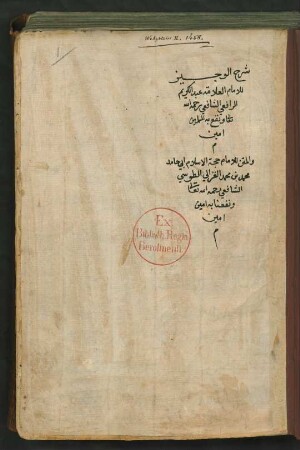 1
شرح الوجيز
للامام العلامه عبد الكريم
الرافعي الشافعي رحمه الله
ونفع به
امين
م
والمتن للامام حجة الاسلام ابي حامد
محمد بن محمد الغزالي الطوسي
الشافعي رحمه الله تعالى
ونفعنا به امين
امين
م
Ex
Biblioth. Regia
Berolinensi